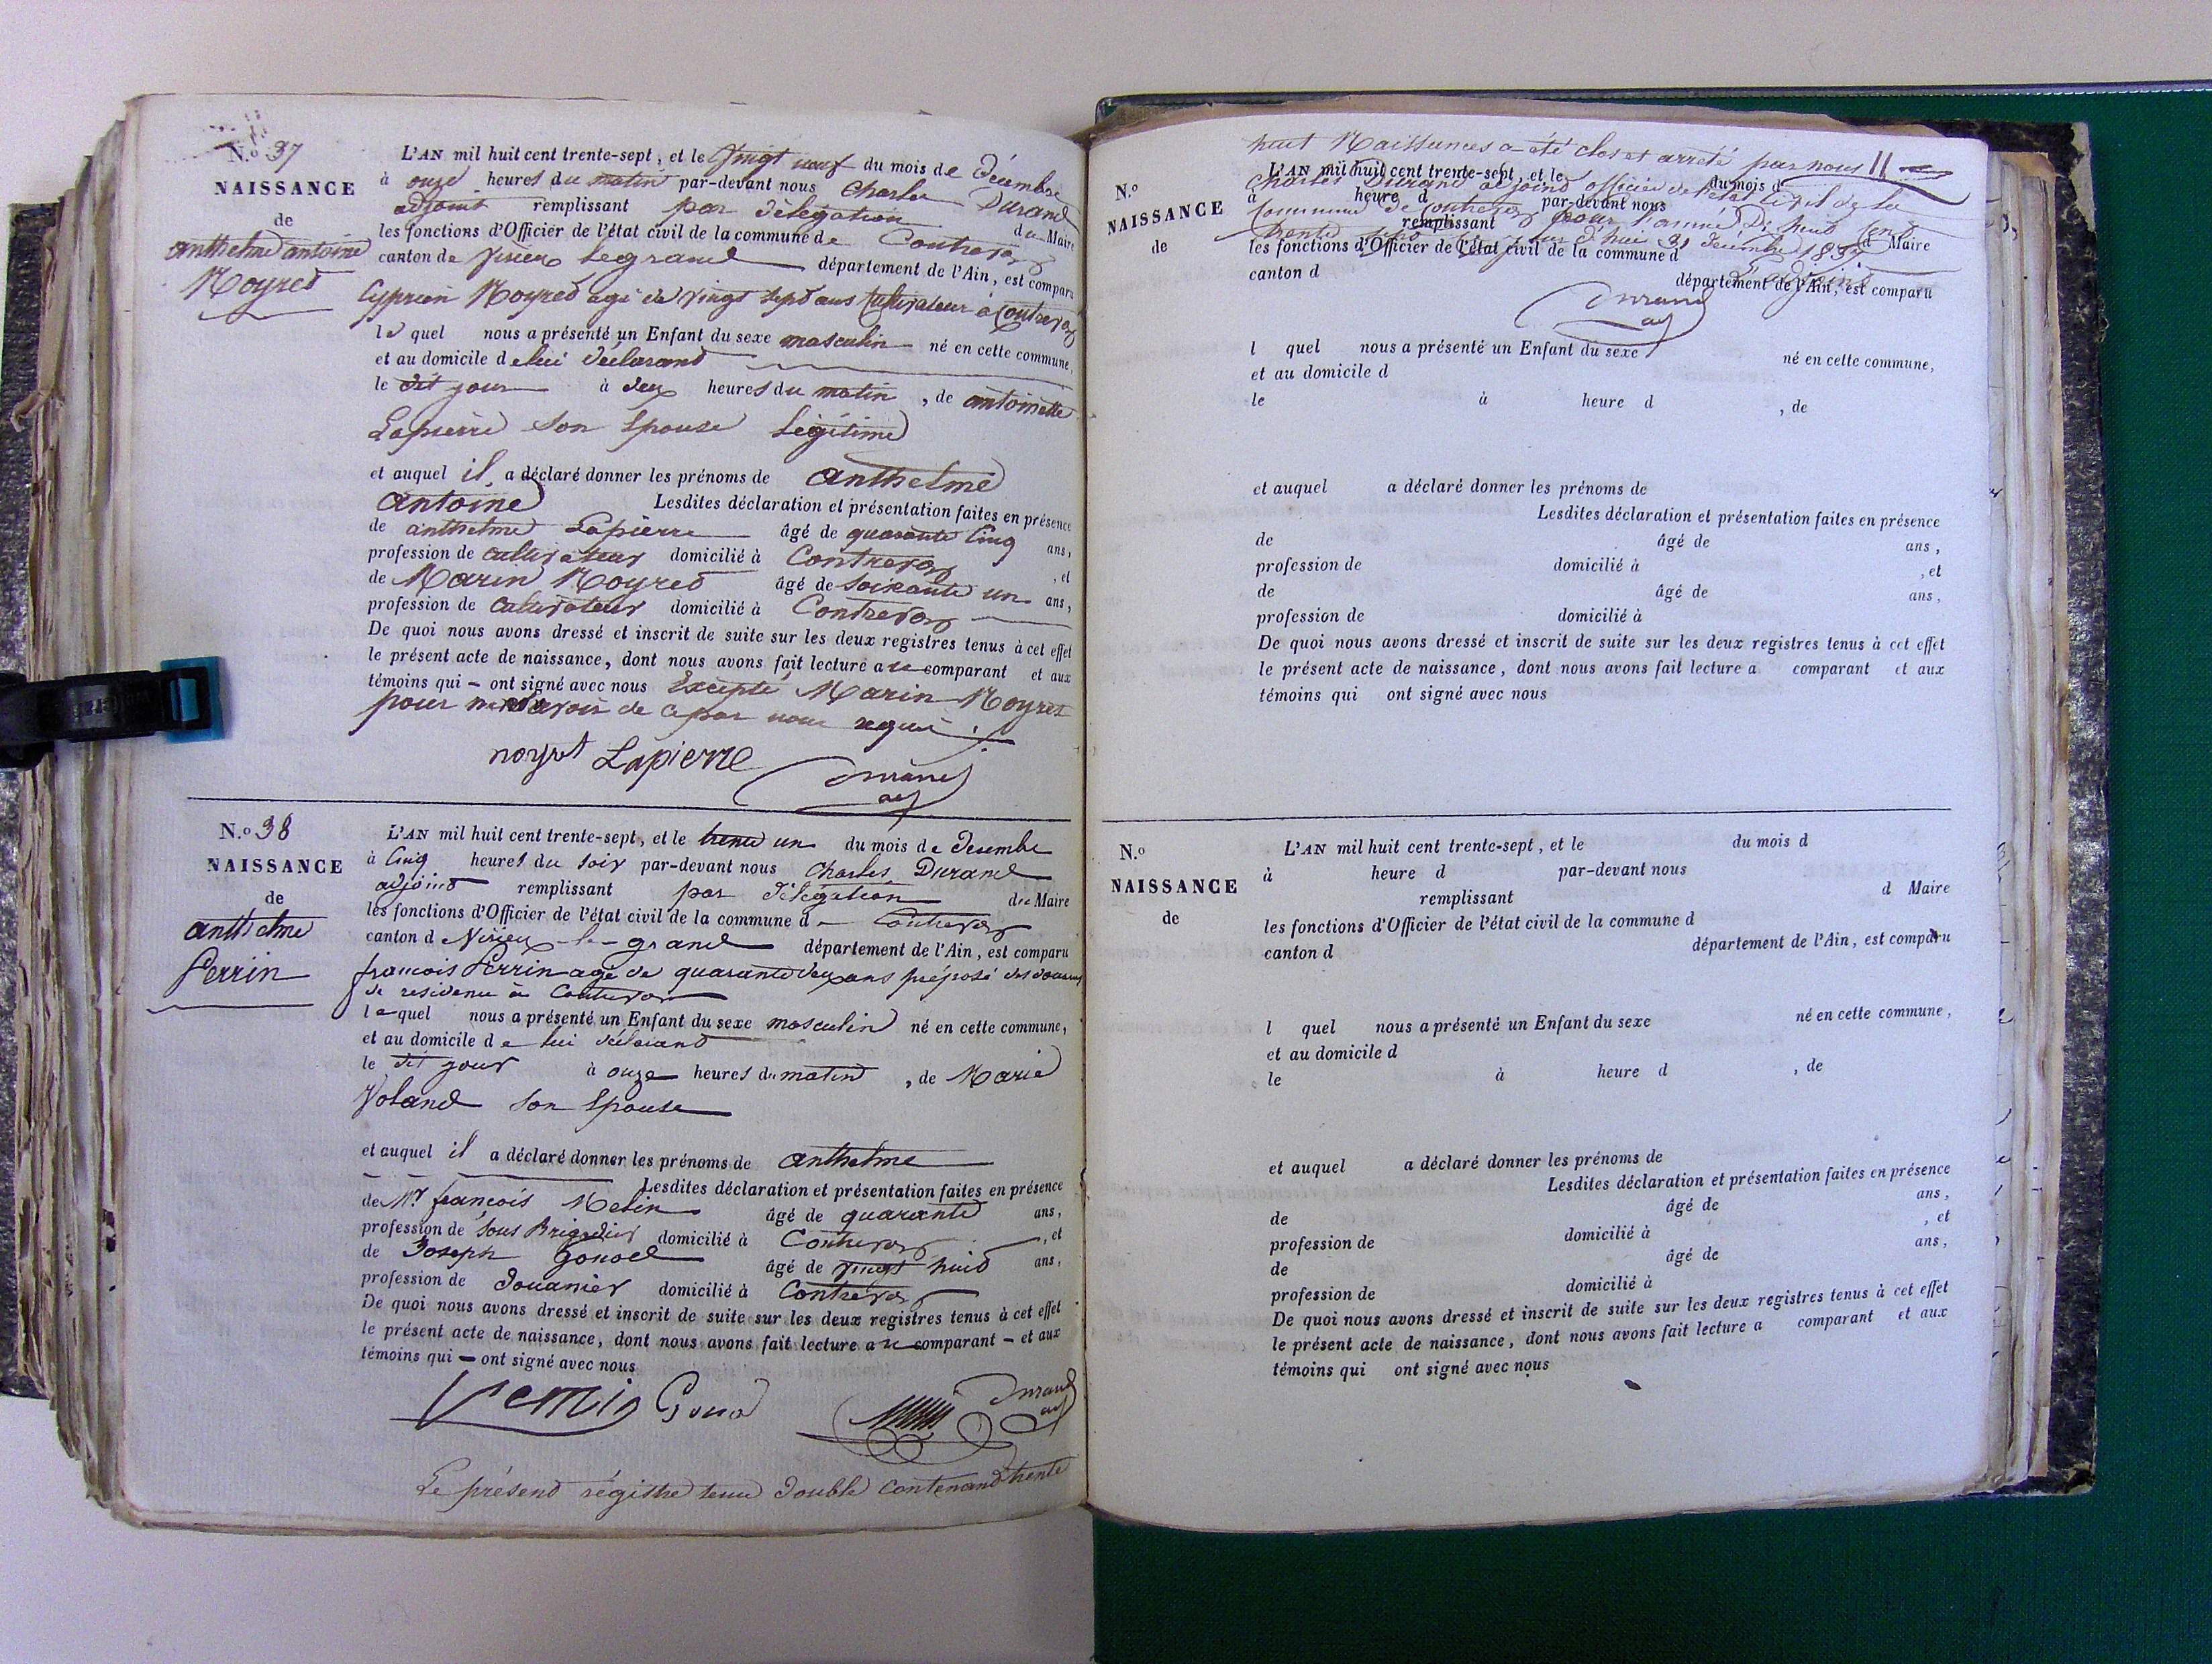 N.o 37
NAISSANCE
de
anthelme antoine
Noyret
L'AN mil huit cent trente-sept, et le vingt neuf du mois de Décembre
à onze heures du matin par-devant nous Charles Durand
adjoint remplissant par délégation du Maire
les fonctions d'Officier de l'état civil de la commune de Contrevoz
canton de Virieu legrand département de l'Ain, est comparu
Cyprien Noyred agé de vingt sept ans Cultivateur à Contrevoz
le quel nous a présenté un Enfant du sexe masculin né en cette commune,
et au domicile de lui déclarand
le dit jour à deux heures du matin, de antoinette
Lapierre son Epouse Légitime
et auquel il a déclaré donner les prénoms de anthelme
Antoine Lesdites déclaration et présentation faites en présence
de anthelme Lapierre âgé de quarante Cinq ans,
profession de cultivateur domicilié à Contrevoz, et
de Marin Noyred âgé de soixante un ans,
profession de Cultivateur domicilié à Contrevoz
De quoi nous avons dressé et inscrit de suite sur les deux registres tenus à cet effet
le présent acte de naissance, dont nous avons fait lecture au comparant et aux
témoins qui – ont signé avec nous Excepté Marin Noyret
pour ne savoir de ce par nous requi
noyret Lapierre
Durand
adj
N.o 38
NAISSANCE
de
anthelme
Perrin
L'AN mil huit cent trente-sept, et le trente un du mois de Decembre
à Cinq heures du soir par-devant nous Charles Durand
adjoind remplissant par délégation du Maire
les fonctions d'Officier de l'état civil de la commune de Contrevoz
canton d Virieu-le-grand département de l'Ain, est comparu
françois Perrin agé de quarante deux ans préposé des douanes
de residence à Contrevoz
le quel nous a présenté un Enfant du sexe masculin né en cette commune,
et au domicile de lui déclarand
le dit jour à onze heures du matin, de Marie
Voland son Epouse
et auquel il a déclaré donner les prénoms de anthelme
Lesdites déclaration et présentation faites en présence
de Mr françois Metin âgé de quarante ans,
profession de Sous Brigadier domicilié à Contrevoz, et
de Joseph Gonod âgé de vingt huit ans,
profession de Douanier domicilié à Contrevoz
De quoi nous avons dressé et inscrit de suite sur les deux registres tenus à cet effet
le présent acte de naissance, dont nous avons fait lecture au comparant – et aux
témoins qui – ont signé avec nous
Perrin Gonod
Durand
adj
Le présend régistre tenu double Contenand trente
huit Naissances a été clos et arreté par nous
Charles Durand adjoind officier de l'état civil de la
Commune de Contrevoz pour l'année Dix huit Cent
Trente sept Ce jour d'hui 31 décembre 1837
L'adjoint
Durand
adj
N.o
NAISSANCE
de
L'AN mil huit cent trente-sept, et le du mois d
à heure d par-devant nous
remplissant d Maire
les fonctions d'Officier de l'état civil de la commune d
canton d département de l'Ain, est comparu
l quel nous a présenté un Enfant du sexe né en cette commune,
et au domicile d
le à heure d , de
et auquel a déclaré donner les prénoms de
Lesdites déclaration et présentation faites en présence
de âgé de ans,
profession de domicilié à , et
de âgé de ans,
profession de domicilié à
De quoi nous avons dressé et inscrit de suite sur les deux registres tenus à cet effet
le présent acte de naissance, dont nous avons fait lecture a comparant et aux
témoins qui ont signé avec nous
N.o
NAISSANCE
de
L'AN mil huit cent trente-sept, et le du mois d
à heure d par-devant nous
remplissant d Maire
les fonctions d'Officier de l'état civil de la commune d
canton d département de l'Ain, est comparu
l quel nous a présenté un Enfant du sexe né en cette commune,
et au domicile d
le à heure d , de
et auquel a déclaré donner les prénoms de
Lesdites déclaration et présentation faites en présence
de âgé de ans,
profession de domicilié à , et
de âgé de ans,
profession de domicilié à
De quoi nous avons dressé et inscrit de suite sur les deux registres tenus à cet effet
le présent acte de naissance, dont nous avons fait lecture a comparant et aux
témoins qui ont signé avec nous